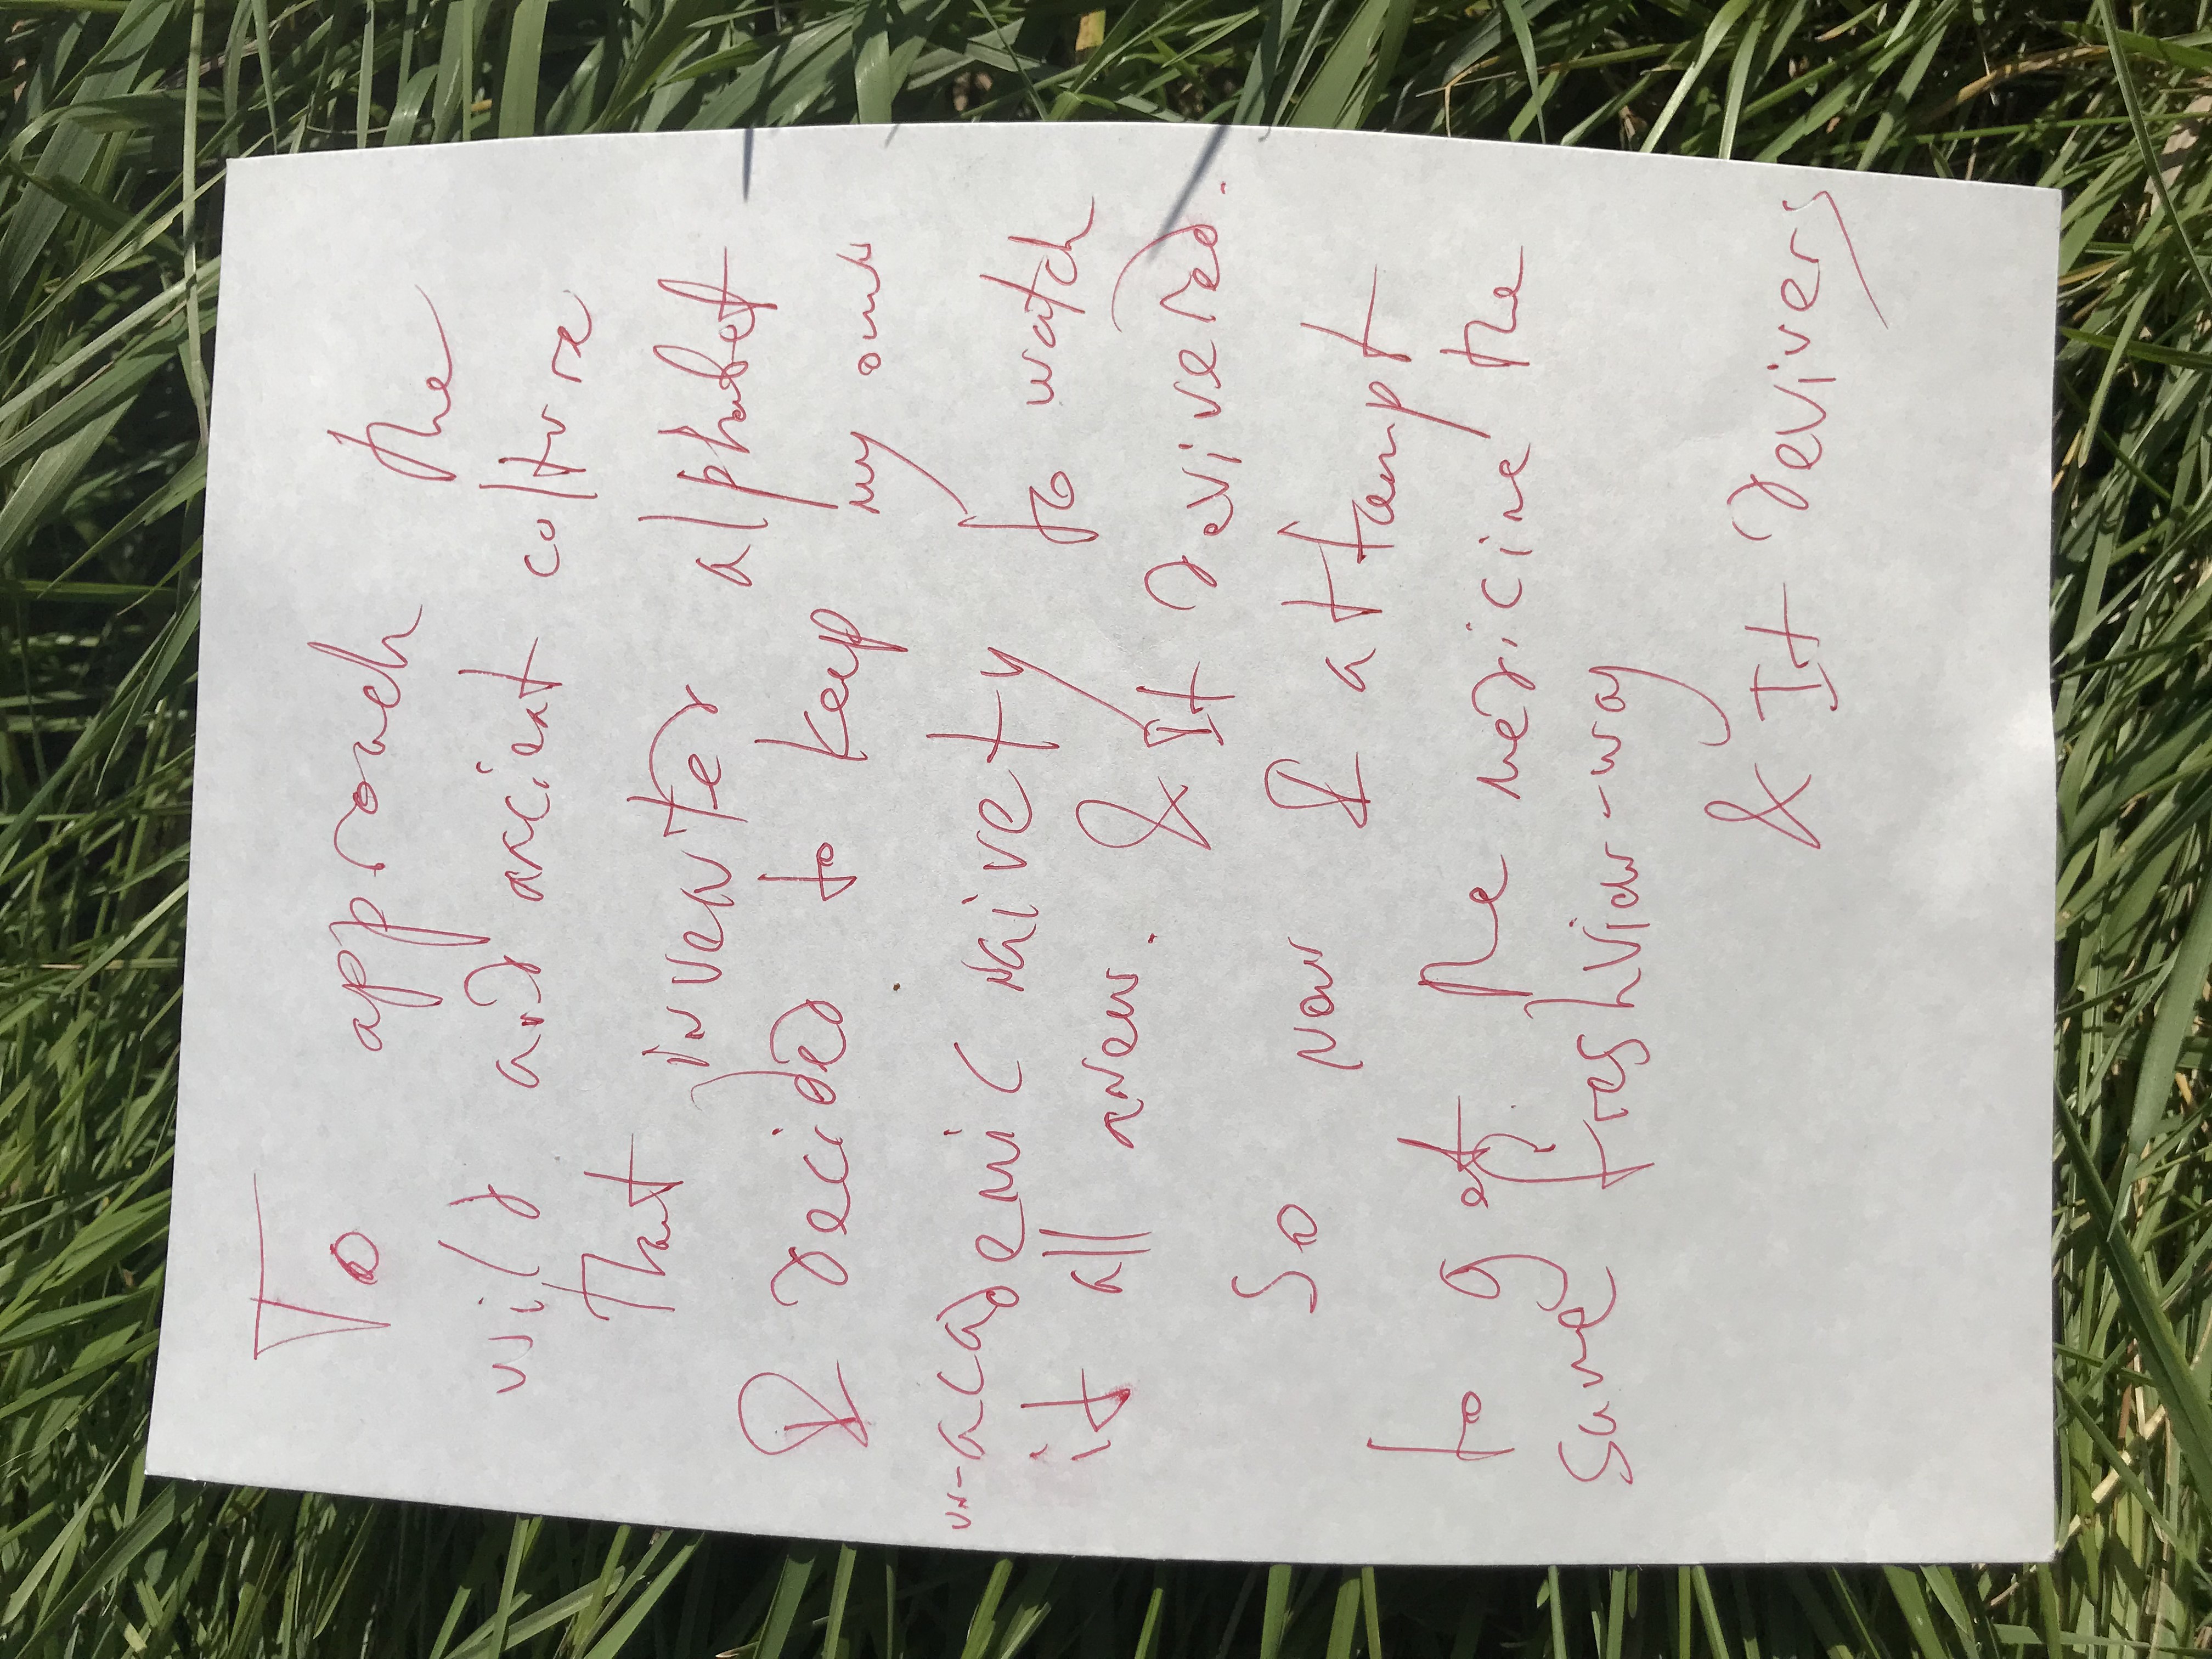 To approach the
wild and ancient culture
that invented alphabet
I decided to keep my own
un-academic naivety to watch
it all anew. & It devivered.
So now I attempt
to get the medicine the
same freshview-way
& It devivers